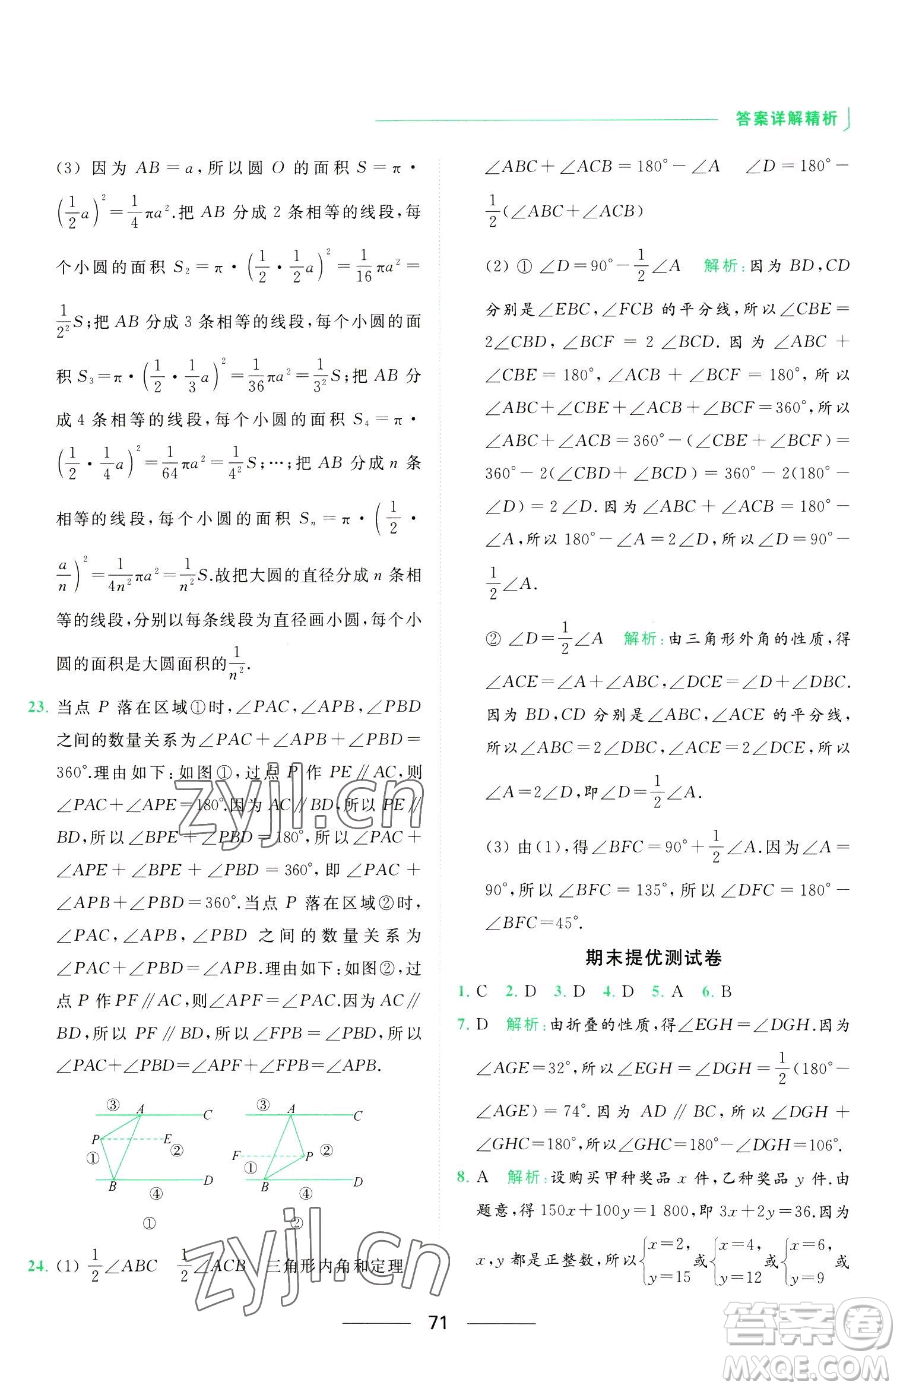 答案详解精析
(3) 因为 AB=a,所以圆 O 的面积 S=π·
(1/2 a)²=1/4 πa².把 AB 分成 2 条相等的线段,每
个小圆的面积 S₂=π·(1/2·1/2 a)²=1/16 πa²=
1/2² S;把 AB 分成 3 条相等的线段,每个小圆的面
积 S₃=π·(1/2·1/3 a)²=1/36 πa²=1/3² S;把 AB 分
成 4 条相等的线段,每个小圆的面积 S₄=π·
(1/2·1/4 a)²=1/64 πa²=1/4² S;…;把 AB 分成 n 条
相等的线段,每个小圆的面积 Sₙ=π·(1/2·
a/n)²=1/4n² πa²=1/n² S.故把大圆的直径分成 n 条相
等的线段,分别以每条线段为直径画小圆,每个小
圆的面积是大圆面积的1/n².
23. 当点 P 落在区域①时,∠PAC,∠APB,∠PBD
之间的数量关系为∠PAC+∠APB+∠PBD=
360°.理由如下:如图①,过点 P 作 PE∥AC,则
∠PAC+∠APE=180°.因为 AC∥BD,所以 PE∥
BD,所以∠BPE+∠PBD=180°,所以∠PAC+
∠APE+∠BPE+∠PBD=360°,即∠PAC+
∠APB+∠PBD=360°.当点 P 落在区域②时,
∠PAC,∠APB,∠PBD 之间的数量关系为
∠PAC+∠PBD=∠APB.理由如下:如图②,过
点 P 作 PF∥AC,则∠PAC=∠APF.因为 AC∥
BD,所以 PF∥BD,所以∠FPB=∠PBD,所以
∠PAC+∠PBD=∠APF+∠FPB=∠APB.
③ A C
P E
① ②
B D
④
①
③ A C
F P ②
①
B D
④
②
24. (1) 1/2∠ABC 1/2∠ACB 三角形内角和定理
∠ABC+∠ACB=180°-∠A ∠D=180°-
1/2(∠ABC+∠ACB)
(2) ① ∠D=90°-1/2∠A 解析:因为 BD,CD
分别是∠EBC,∠FCB 的平分线,所以∠CBE=
2∠CBD,∠BCF=2∠BCD.因为∠ABC+
∠CBE=180°,∠ACB+∠BCF=180°,所以
∠ABC+∠CBE+∠ACB+∠BCF=360°,所以
∠ABC+∠ACB=360°-(∠CBE+∠BCF)=
360°-2(∠CBD+∠BCD)=360°-2(180°-
∠D)=2∠D.因为∠ABC+∠ACB=180°-
∠A,所以 180°-∠A=2∠D,所以∠D=90°-
1/2∠A.
② ∠D=1/2∠A 解析:由三角形外角的性质,得
∠ACE=∠A+∠ABC,∠DCE=∠D+∠DBC.
因为 BD,CD 分别是∠ABC,∠ACE 的平分线,
所以∠ABC=2∠DBC,∠ACE=2∠DCE,所以
∠A=2∠D,即∠D=1/2∠A.
(3) 由(1),得∠BFC=90°+1/2∠A.因为∠A=
90°,所以∠BFC=135°,所以∠DFC=180°-
∠BFC=45°.
期末提优测试卷
1. C 2. D 3. D 4. D 5. A 6. B
7. D 解析:由折叠的性质,得∠EGH=∠DGH.因为
∠AGE=32°,所以∠EGH=∠DGH=1/2(180°-
∠AGE)=74°.因为 AD∥BC,所以∠DGH+
∠GHC=180°,所以∠GHC=180°-∠DGH=106°.
8. A 解析:设购买甲种奖品 x 件,乙种奖品 y 件.由
题意,得 150x+100y=1 800,即 3x+2y=36.因为
x,y 都是正整数,所以{x=2, y=15 或{x=4, y=12 或{x=6, y=9 或
71
zyjl.cn
zyjl.cn
答案圈
MXQE.COM